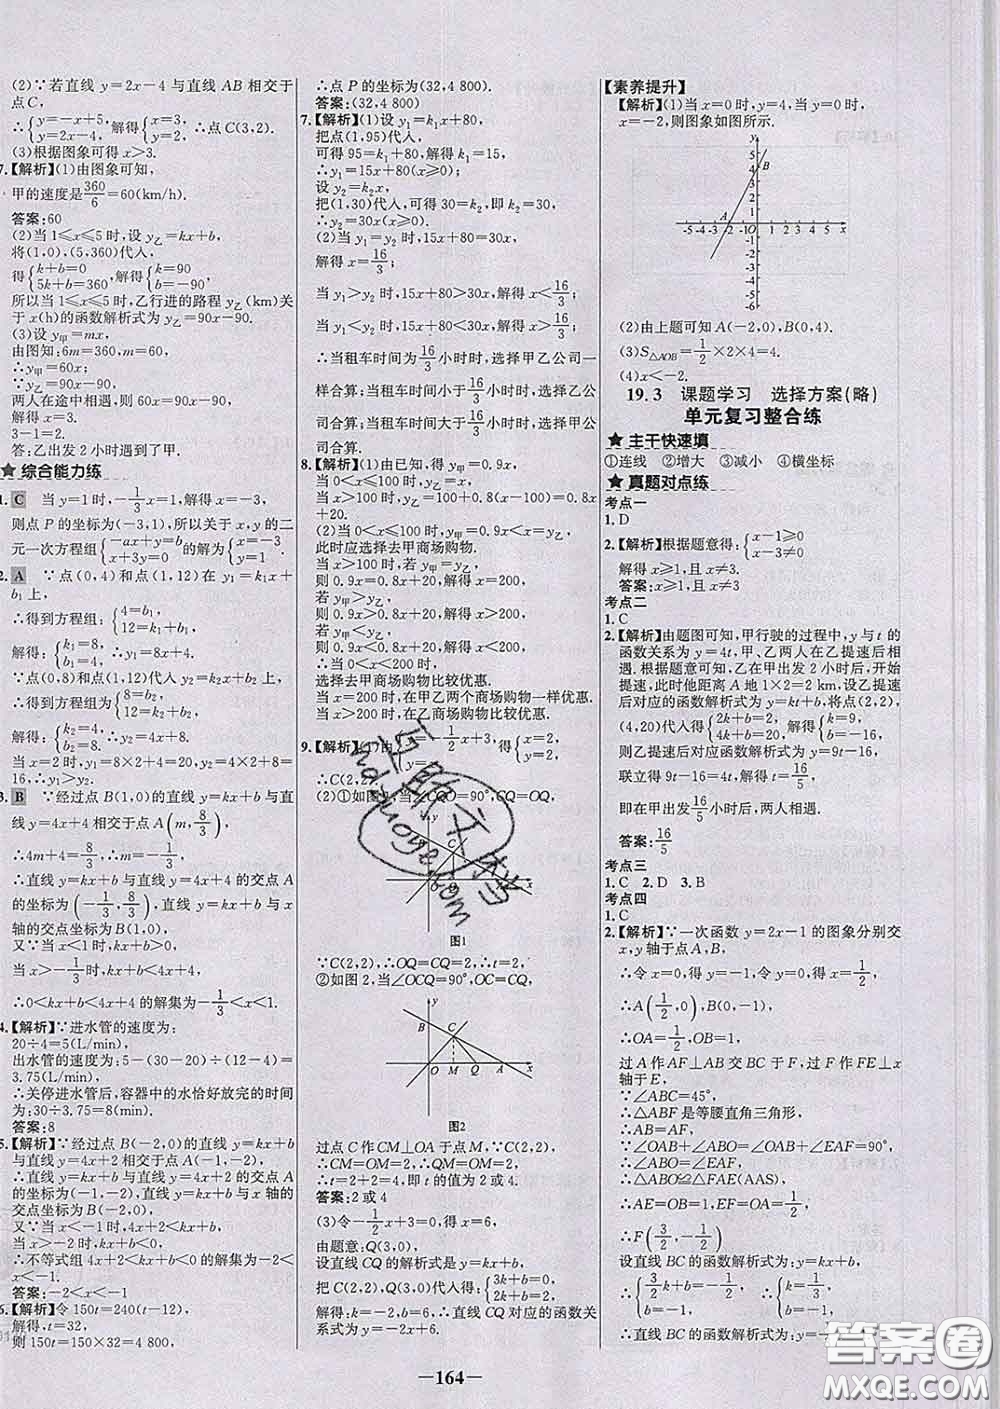 (2)∵若直线 y=2x-4 与直线 AB 相交于
点 C,
∴{y=-x+5, y=2x-4. 解得{x=3, y=2. ∴点 C(3,2).
(3)根据图象可得 x>3.
7.【解析】(1)由图象可知,
甲的速度是360/6=60(km/h).
答案:60
(2)当 1≤x≤5 时,设 y乙=kx+b,
将(1,0),(5,360)代入,
得{k+b=0 5k+b=360,解得{k=90 b=-90.
所以当 1≤x≤5 时,乙行进的路程 y乙(km)关
于 x(h)的函数解析式为 y乙=90x-90.
(3)设 y甲=mx,
由图知:6m=360,m=60,
∴y甲=60x,
∴60x=90x-90,
两人在途中相遇,则 60x=90x-90,
解得 x=3.
3-1=2.
答:乙出发 2 小时遇到了甲.
★ 综合能力练
1. C 当 y=1 时,-1/3x=1,解得 x=-3,
则点 P 的坐标为(-3,1),所以关于 x,y 的二
元一次方程组{-ax+y=b x+3y=0 的解为{x=-3 y=1.
2. A ∵点(0,4)和点(1,12)在 y₁=k₁x+
b₁上,
∴得到方程组:{4=b₁ 12=k₁+b₁,
解得:{k₁=8 b₁=4,∴y₁=8x+4.
∵点(0,8)和点(1,12)代入 y₂=k₂x+b₂ 上,
∴得到方程组为{8=b₂ 12=k₂+b₂,
解得:{k₂=4 b₂=8,∴y₂=4x+8.
当 x=2 时,y₁=8×2+4=20,y₂=4×2+8=16,
∴y₁>y₂.
3. B ∵经过点 B(1,0)的直线 y=kx+b 与直
线 y=4x+4 相交于点 A(m,8/3),
∴4m+4=8/3,∴m=-1/3,
∴直线 y=kx+b 与直线 y=4x+4 的交点 A
的坐标为(-1/3,8/3),直线 y=kx+b 与 x
轴的交点坐标为 B(1,0),
又∵当 x<1 时,kx+b>0,
当 x>-1/3时,kx+b<4x+4,
∴0<kx+b<4x+4 的解集为-1/3<x<1.
4.【解析】∵进水管的速度为:
20÷4=5(L/min),
出水管的速度为:5-(30-20)÷(12-4)=
3.75(L/min),
∴关停进水管后,容器中的水恰好放完的时间
为:30÷3.75=8(min).
答案:8
5.【解析】∵经过点 B(-2,0)的直线 y=kx+b
与直线 y=4x+2 相交于点 A(-1,-2),
∴直线 y=kx+b 与直线 y=4x+2 的交点 A
的坐标为(-1,-2),直线 y=kx+b 与 x 轴的
交点坐标为 B(-2,0),
又∵当 x<-1 时,4x+2<kx+b,
当 x>-2 时,kx+b<0,
∴不等式组 4x+2<kx+b<0 的解集为-2<
x<-1.
答案:-2<x<-1
6.【解析】令 150t=240(t-12),
解得,t=32,
则 150t=150×32=4 800,
∴点 P 的坐标为(32,4 800)
答案:(32,4 800)
7.【解析】(1)设 y₁=k₁x+80,
把点(1,95)代入,
可得 95=k₁+80,解得 k₁=15,
∴y₁=15x+80(x≥0);
设 y₂=k₂x,
把(1,30)代入,可得 30=k₂,即 k₂=30,
∴y₂=30x(x≥0).
(2)当 y₁=y₂时,15x+80=30x,
解得 x=16/3;
当 y₁>y₂时,15x+80>30x,解得 x<16/3;
当 y₁<y₂时,15x+80<30x,解得 x>16/3;
∴当租车时间为16/3小时时,选择甲乙公司一
样合算;当租车时间小于16/3小时时,选择乙公
司合算;当租车时间大于16/3小时时,选择甲公
司合算.
8.【解析】(1)由已知,得 y甲=0.9x,
当 0<x≤100 时,y乙=x,
当 x>100 时,y乙=100+(x-100)×0.8=
0.8x+20.
(2)当 0<x≤100 时,y甲<y乙,
此时应选择去甲商场购物.
当 x>100 时,若 y甲=y乙,
则 0.9x=0.8x+20,解得 x=200,
若 y甲>y乙,
则 0.9x>0.8x+20,解得 x>200,
若 y甲<y乙,
则 0.9x<0.8x+20,解得 x<200,
∴当 0<x<200 时,
选择去甲商场购物比较优惠.
当 x=200 时,在甲乙两个商场购物一样优惠.
当 x>200 时,在乙商场购物比较优惠.
9.【解析】(1)由 y=-1/2x+3, 得{x=2, y=2,
∴C(2,2),
(2)①如图1,当∠CQO=90°,CQ=OQ,
图1
∵C(2,2),∴OQ=CQ=2,∴t=2,
②如图 2,当∠OCQ=90°,OC=CQ,
y B C O M Q A x
图2
过点 C 作 CM⊥OA 于点 M,∵C(2,2),
∴CM=OM=2,∴QM=CM=2,
∴t=2+2=4,即 t 的值为 2 或 4.
答案:2 或 4
(3)令-1/2x+3=0,得 x=6,
由题意:Q(3,0),
设直线 CQ 的解析式为 y=kx+b,
把 C(2,2),Q(3,0)代入得:{3k+b=0, 2k+b=2,
解得:k=-2,b=6,∴直线 CQ 对应的函数关
系式为 y=-2x+6.
【素养提升】
【解析】(1)当 x=0 时,y=4,当 y=0 时,
x=-2,则图象如图所示.
(2)由上题可知 A(-2,0),B(0,4).
(3)S△AOB=1/2×2×4=4.
(4)x<-2.
19.3 课题学习 选择方案(略)
单元复习整合练
★ 主干快速填
①连线 ②增大 ③减小 ④横坐标
★ 真题对点练
考点一
1. D
2.【解析】根据题意得:{x-1≥0 x-3≠0
解得 x≥1,且 x≠3.
答案:x≥1,且 x≠3
考点二
1. C
2.【解析】由题图可知,甲行驶的过程中,y 与 t 的
函数关系为 y=4t,甲、乙两人在乙提速后相
遇.根据题意可知,乙在甲出发 2 h 后,开始
提速,此时他距离 A 地 1×2=2 km,设乙提速
后对应的函数解析式为 y=kt+b,将点(2,2),
(4,20)代入得{2k+b=2, 4k+b=20,解得{k=9, b=-16,
则乙提速后对应函数解析式为 y=9t-16,
联立得 9t-16=4t,解得 t=16/5,
即在甲出发16/5小时后,两人相遇.
答案:16/5
考点三
1. C 2. D 3. B
考点四
1. C
2.【解析】∵一次函数 y=2x-1 的图象分别交
x,y 轴于点 A,B,
∴令 x=0,得 y=-1,令 y=0,得 x=1/2,
∴A(1/2,0),B(0,-1),
∴OA=1/2,OB=1,
过 A 作 AF⊥AB 交 BC 于 F,过 F 作 FE⊥x
轴于 E,
∵∠ABC=45°,
∴△ABF 是等腰直角三角形,
∴AB=AF,
∵∠OAB+∠ABO=∠OAB+∠EAF=90°,
∴∠ABO=∠EAF,
∴△ABO≌△FAE(AAS),
∴AE=OB=1,EF=OA=1/2,
∴F(3/2,-1/2)
设直线 BC 的函数解析式为:y=kx+b,
∴{3/2k+b=-1/2 b=-1 ∴{k=1/3 b=-1
∴直线 BC 的函数解析式为:y=
—164—
答案圈
MXQE.COM